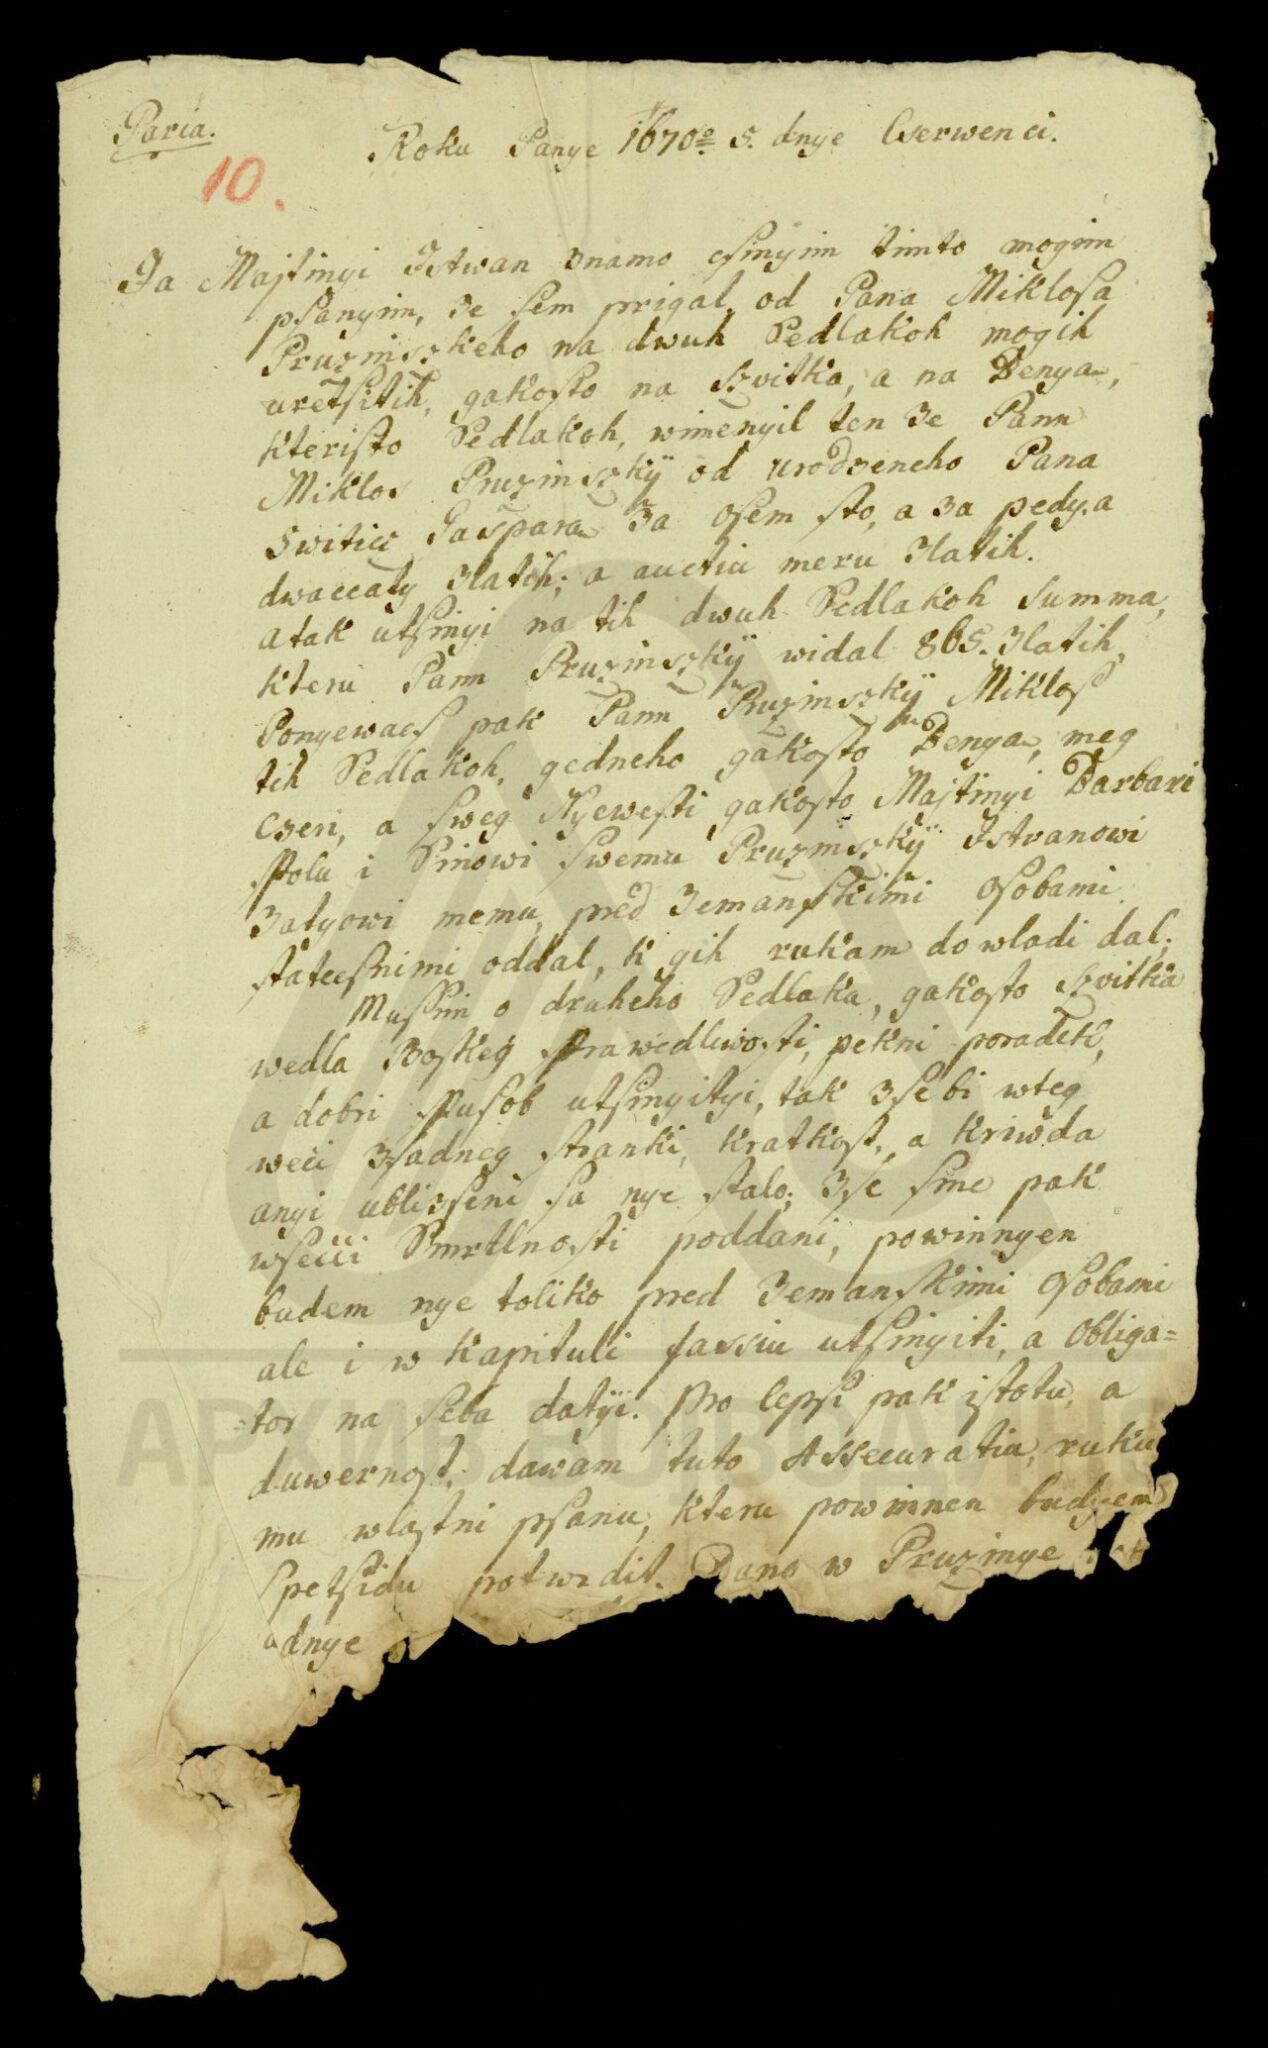 Paria.
Roku Panye 1670o 5. dnye Cserwenci.
10.
Ja Majtinyi Istwan znamo csinyim timto mogim
psanyim, ze sem prigal od Pana Miklosa
Pruzinszkeho na dwuh Sedlakoh mogih
uretsitih, gakosto na Szvitka, a na Benya,
kteristo Sedlakoh, wimenyil ten ze Pann
Miklos Pruzinszkÿ od urodzeneho Pana
Switics Gaspara za osem sto, a za pedy.a
dwaccaty zlatih; a auctiu meru zlatih.
atak utsinyi na tih dwuh Sedlakoh Summa,
kteru Pann Pruzinszkÿ widal 865. zlatih,
Ponyewacs pak Pann Pruzinszkÿ Miklos
tih Sedlakoh, gedneho gakosto Benya, meg
Czeri, a sweg Nyewesti gakosto Majtinyi Barbari
spolu i Sinowi swemu Pruzinszkÿ Istvanowi
Zatyowi memu, pred Zemanskimi Osobami
statecsnimi oddal, k gih rukam do wladi dal;
Mussim o druheho Sedlaka, gakosto Szvitka
wedla Boskeg Sprawedliwosti, pekni poradek,
a dobri spusob utsinyityi, tak zse bi wteg
weci zsadneg stranki, kratkost, a kriwda
anyi ublizseni sa nye stalo; zse sme pak
wseczi Smrtlnosti poddani, powinnyen
budem nye toliko pred Zemanskimi Osobami
ale i w Kapituli fassiu utsinyiti, a Obliga=
=tor na seba datyi. Pro lepsi pak istotu, a
duwernost, dawam tuto Assecuratiu, ruku
mu wlastni psanu, kteru powinnen budyem
Spetsidu potwrdit. Dano w Pruzinye
dnye
АРХИВ